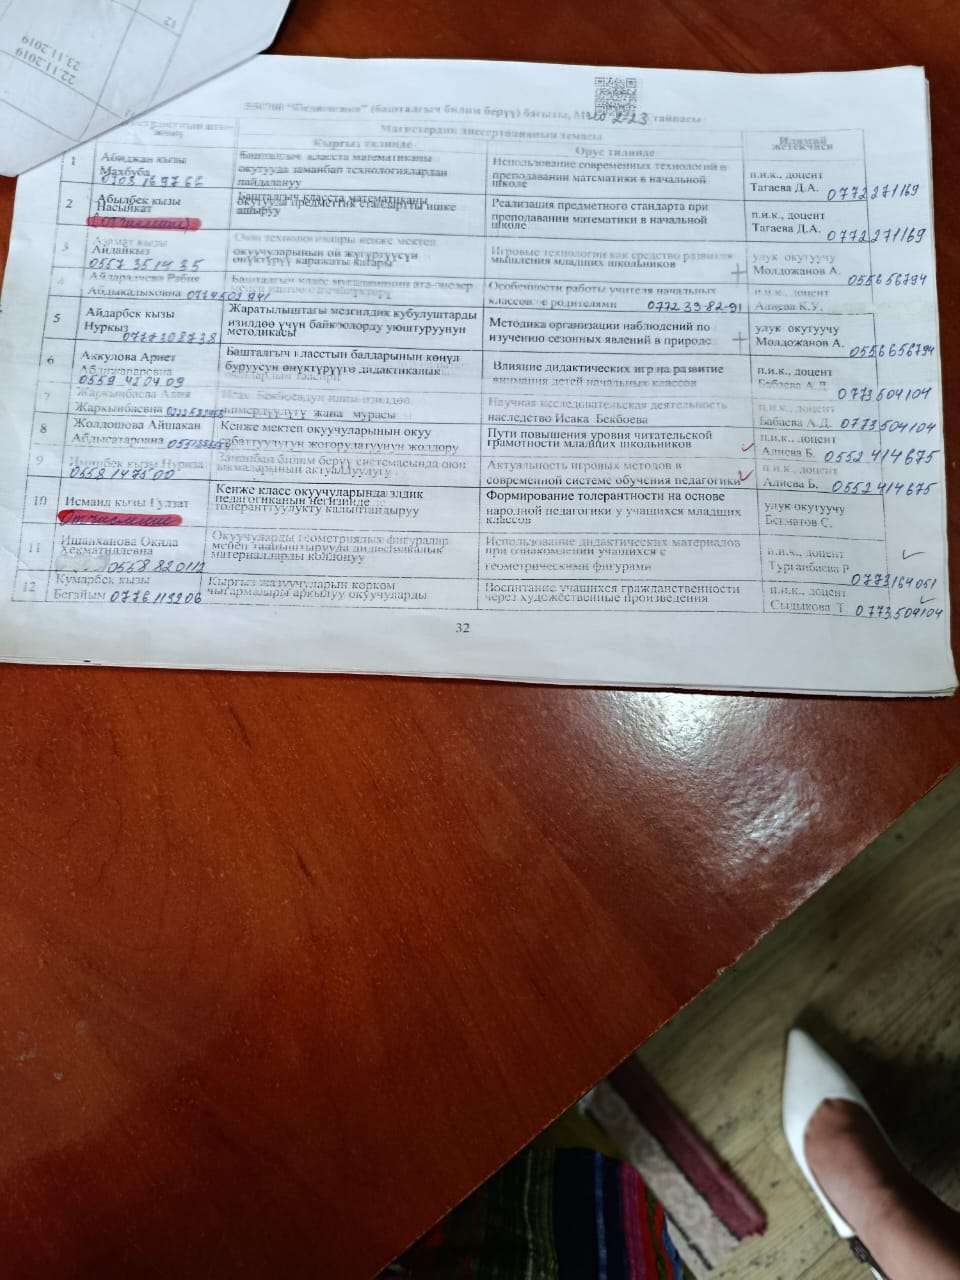 22.11.2019
23.11.2019
12
(башталгыч билим беруу) багыты, 2-23 тайпасы
Магистрдик диссертациянын темасы
Кыргыз тилинде
Орус тилинде
Илимий жетекчиси
1
Абиджан кызы
Махбуба
0703 169766
Башталгыч класста математиканы
окутууда заманбап технологиялардан
пайдалануу
Использование современных технологий в
преподавании математики в начальной
школе
п.и.к., доцент
Тагаева Д.А. 0772 271169
2
Абылбек кызы
Насыйкат
Башталгыч класста математиканы
окутууда предметтик стандартты ишке
ашыруу
Реализация предметного стандарта при
преподавании математики в начальной
школе
п.и.к., доцент
Тагаева Д.А. 0772 271169
3
Азамат кызы
Айдайкыз
0557 35 14 35
Оюн технологиялары кенже мектеп
окуучуларынын ой жүгүртүүсүн
өнүктүрүү каражаты катары
Игровые технологии как средство развития
мышления младших школьников
улук окутуучу
Молдожанов А. 0556656794
4
Абдыкалыковна
Особенности работы учителя начальных
классов с родителями 0772 39 82-91
п.и.к., доцент
Алиева К.У.
5
Айдарбек кызы
Нуркыз 0777308738
Жаратылыштагы мезгилдик кубулуштарды
изилдөө үчүн байкоолорду уюштуруунун
методикасы
Методика организации наблюдений по
изучению сезонных явлений в природе
улук окутуучу
Молдожанов А. 0556656794
6
Аккулова Ариет
0559 42 04 09
Башталгыч класстын балдарынын көңүл
буруусун өнүктүрүүгө дидактикалык
Влияние дидактических игр на развитие
внимания детей начальных классов
п.и.к., доцент
Бабаева А.Д. 0773504104
7
Жаркынбаевна
жана мурасы
Научная исследовательская деятельность
наследство Исака Бекбоева
п.и.к., доцент
Бабаева А.Д. 0773504104
8
Жолдошова Айшакан
Абдысатаровна
Кенже мектеп окуучуларынын окуу
сабаттуулугун жогорулатуунун жолдору
Пути повышения уровня читательской
грамотности младших школьников
п.и.к., доцент
Алиева Б. 0552 414 675
9
0558 14 75 00
Заманбап билим берүү системасында оюн
ыкмаларынын актуалдуулугу
Актуальность игровых методов в
современной системе обучения педагогики
п.и.к., доцент
Алиева Б. 0552 414 675
10
Исмаил кызы Гулзат
Отчисление
Кенже класс окуучуларында элдик
педагогиканын негизинде
толеранттуулукту калыптандыруу
Формирование толерантности на основе
народной педагогики у учащихся младших
классов
улук окутуучу
Бегматов С.
11
Ишанханова Окила
Хекматиллевна
0558 820112
Окуучуларды геометриялык фигуралар
менен тааныштырууда дидактикалык
материалдарды колдонуу
Использование дидактических материалов
при ознакомлении учащихся с
геометрическими фигурами
п.и.к., доцент
Турганбаева Р. 0773164051
12
Кумарбек кызы
Бегайым 0776 119206
Кыргыз жазуучуларын көркөм
чыгармалары аркылуу окуучуларды
Воспитание учащихся гражданственности
через художественные произведения
п.и.к., доцент
Сыдыкова Т. 0773504104
32